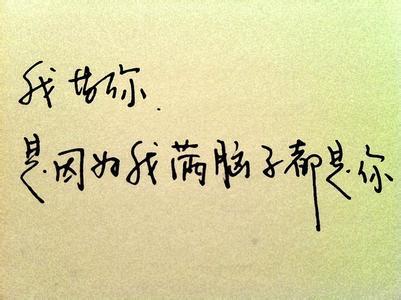 我 你
是因为我满脑子都是你